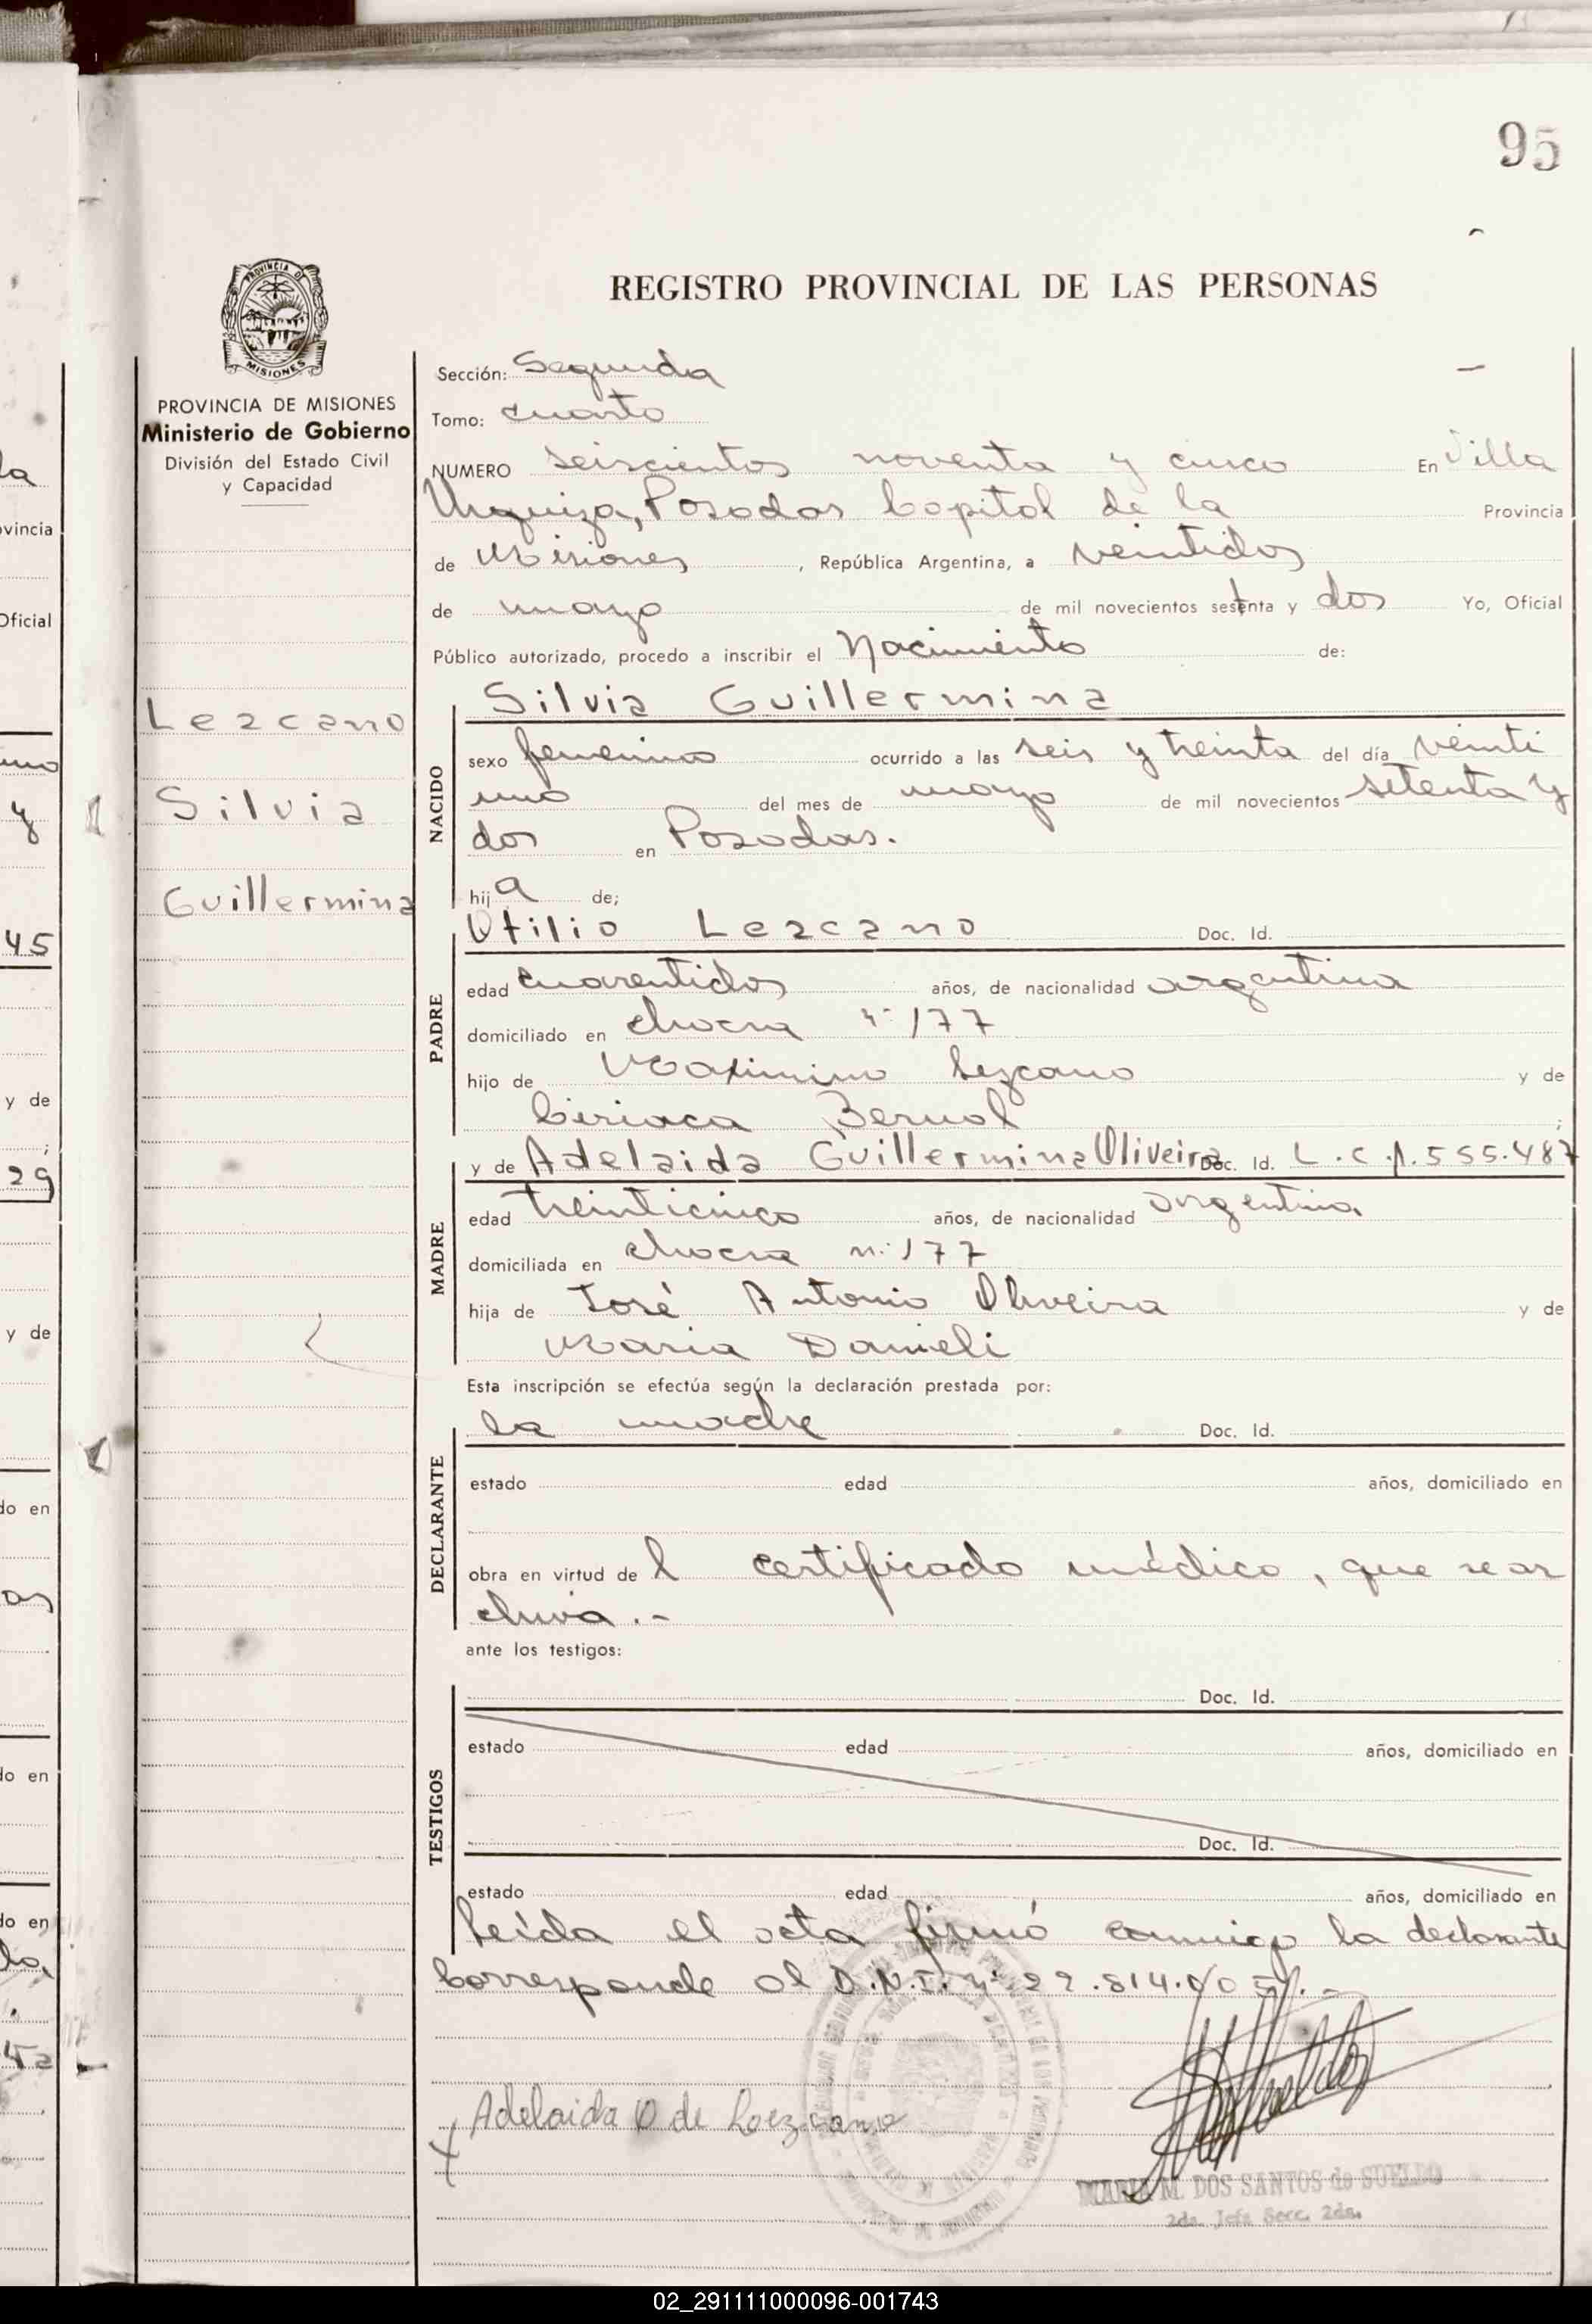 95
PROVINCIA DE MISIONES
Ministerio de Gobierno
División del Estado Civil
y Capacidad
Lezcano
Silvia
Guillermina
REGISTRO PROVINCIAL DE LAS PERSONAS
Sección: Segunda
Tomo: cuarto
NUMERO seiscientos noventa y cinco En Villa
Urquiza, Posadas Capital de la Provincia
de Misiones, República Argentina, a veintidos
de mayo de mil novecientos setenta y dos Yo, Oficial
Público autorizado, procedo a inscribir el Nacimiento de:
NACIDO
Silvia Guillermina
sexo femenino ocurrido a las seis y treinta del día veinti
uno del mes de mayo de mil novecientos setenta y
dos en Posadas.
hija de;
PADRE
Otilio Lezcano Doc. Id.
edad cuarentidos años, de nacionalidad argentina
domiciliado en chacra nº 177
hijo de Maximino Lezcano y de
Ciriaca Bernal;
MADRE
y de Adelaida Guillermina Oliveira Doc. Id. L.C. 1.555.487
edad treinticinco años, de nacionalidad argentina
domiciliada en chacra nº 177
hija de José Antonio Oliveira y de
Maria Danieli
Esta inscripción se efectúa según la declaración prestada por:
DECLARANTE
la madre Doc. Id.
estado edad años, domiciliado en
obra en virtud de l certificado médico, que se ar
chiva.-
ante los testigos:
TESTIGOS
Doc. Id.
estado edad años, domiciliado en
Doc. Id.
estado edad años, domiciliado en
Leída el acta firmó conmigo la declarante
Corresponde al D.N.I. nº 22.814.
Adelaida O de Loezcano
MARIA M. DOS SANTOS de SUELDO
2da. Jefa Secc. 2da.
la
vincia
Oficial
uno
y
45
y de
;
29
y de
do en
as
do en
do en
la
42
02_291111000096-001743